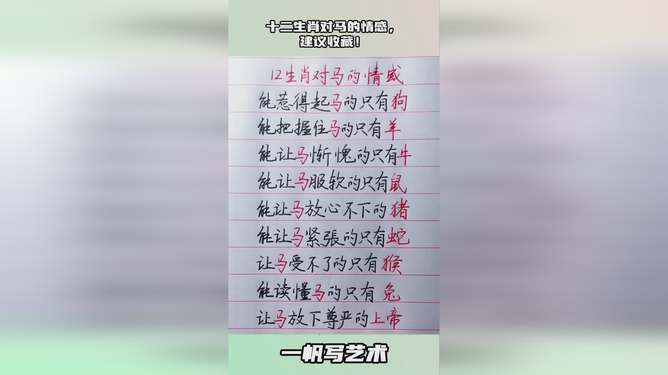 十二生肖对马的情感，
建议收藏！
12生肖对马的情感
能惹得起马的只有狗
能把握住马的只有羊
能让马惭愧的只有牛
能让马服软的只有鼠
能让马放心不下的猪
能让马紧張的只有蛇
让马受不了的只有猴
能读懂马的只有兔
让马放下尊严的上帝
一帆写艺术